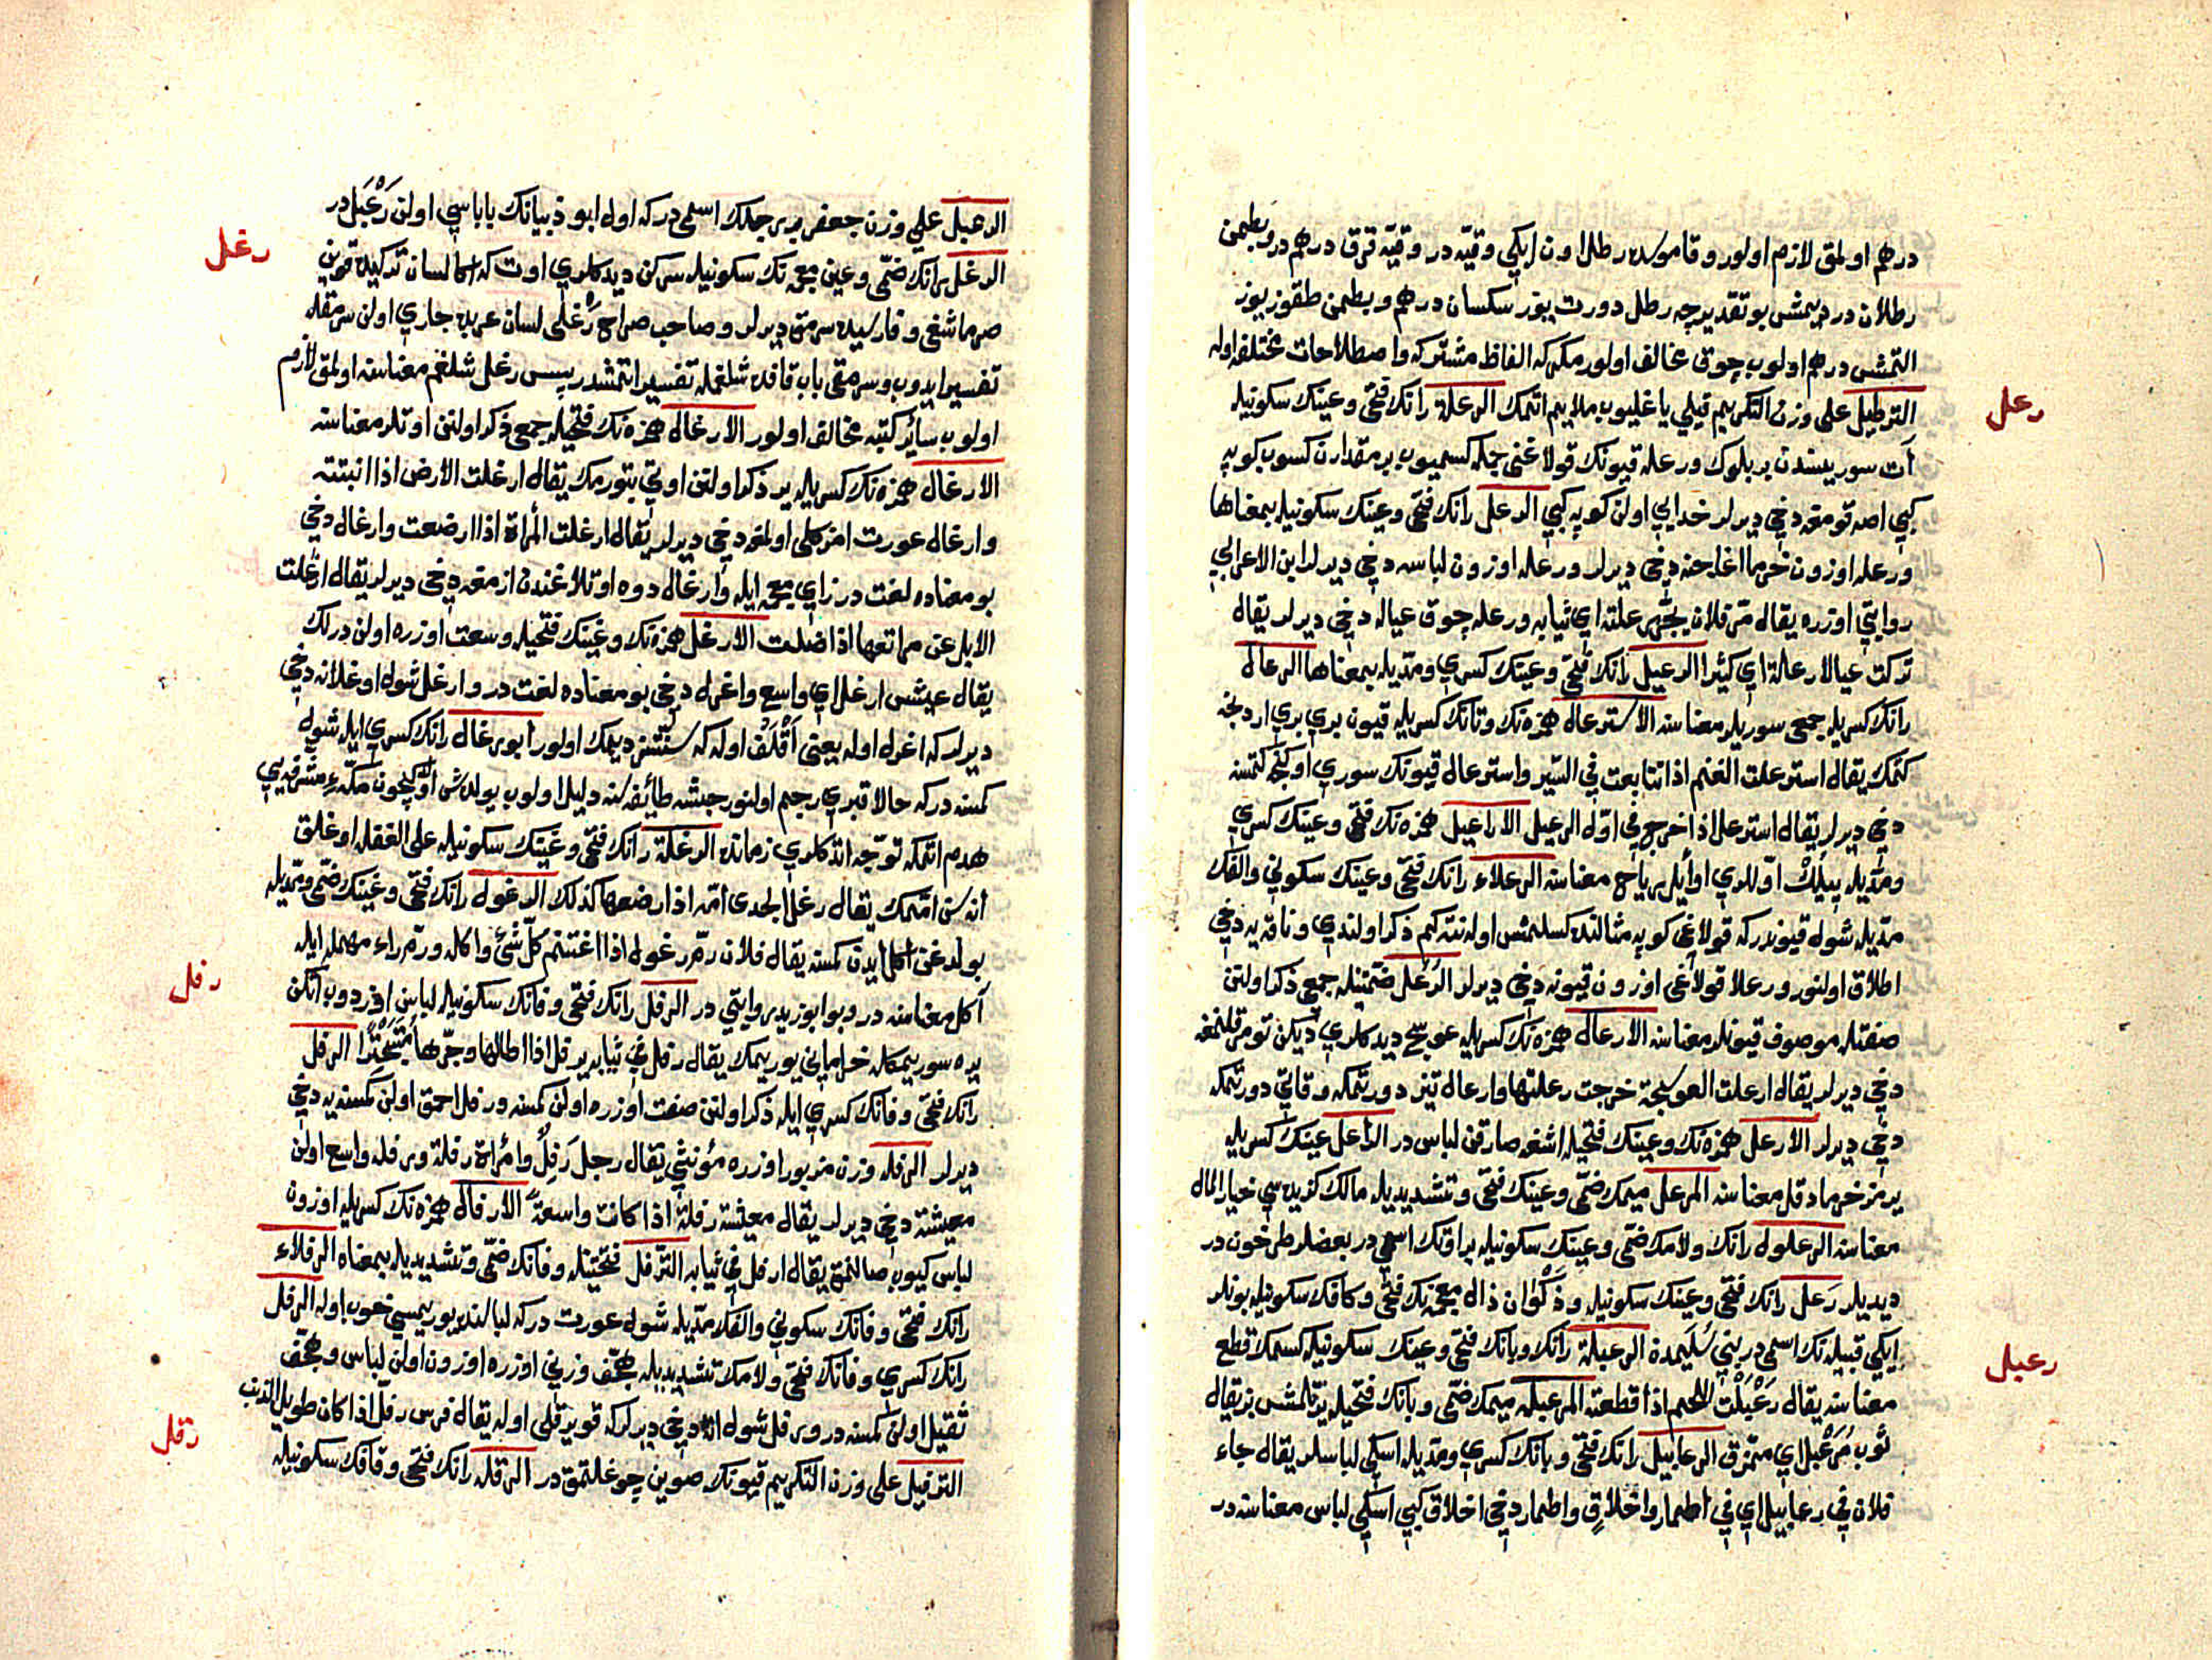 درهم اولمق لازم اولور و قاموسده رطل اون ایکی وقیه در وقیه قرق درهم در وبطمن
رطلان در دیمشی بو تقدیرچه رطل دورت یوز سکسان درهم و بطمن طقوز یوز
التمشی درهم اولوب چوق مخالف اولور مکر که الفاظ مشترکه و اصطلاحات مختلفه اوله
الترطیل علی وزن التکریم قیلی یاغلیوب ملایم اتمک الرعلة رانک فتحی و عینک سکونیله
رعل
آت سوریسندن بر بلوک ورعله قیونک قولاغنی جکه کسمیوب بر مقدارن کسوب کوپه
کبی اصه قومغه دخی دیرلر خدایی اولن کوپه کبی الرعل رانک فتحی و عینک سکونیله بمعناها
ورعله اوزون خرما اغاجنه دخی دیرلر ورعله اوزون لباسه دخی دیرلر ابن الاعرابی
روایتی اوزره یقال مر فلان یجر رعلته ای ثیابه ورعله چوق عیاله دخی دیرلر یقال
ترکت عیالا رعلة ای کثیرا الرعیل رانک فتحی و عینک کسری و مدیله بمعناها الرعال
رانک کسریله جمعی سوریلر معناسنه الاسترعال همزه نک و تانک کسریله قیون بری بری اردنجه
کتمک یقال استرعلت الغنم اذا تتابعت فی السیر و استرعال قیونک سوری اوکنجه کتمسنه
دخی دیرلر یقال استرعل اذا خرج فی اول الرعیل الاراعیل همزه نک فتحی و عینک کسری
و مدیله ییلک اوللری اوایل ریاح معناسنه الرعلاء رانک فتحی و عینک سکونی و الفک
مدیله شول قیوندر که قولاغی کوپه مثالنده کسلمش اوله نته کم ذکر اولندی و ناقه یه دخی
اطلاق اولنور و رعلا قولاغی اوزون قیونه دخی دیرلر الرعل ضمتینله جمعی ذکر اولنن
صفتله موصوف قیونلر معناسنه الارعال همزه نک کسریله عوسج دیدکلری دیکن تومرقلنمغه
دخی دیرلر یقال ارعلت العوسجة خرجت رعلتها و ارعال تیز دورتمکه و قاتی دورتمکه
دخی دیرلر الارعل همزه نک و عینک فتحیله اشغه صارقن لباس در الراعل عینک کسریله
یرمز خرما دقل معناسنه المرعل میمک ضمی و عینک فتحی و تشدیدیله مالک کزیده سی خیار المال
معناسنه الرعلول رانک و لامک ضمی و عینک سکونیله بر اوتک اسمی در بعضلر طرخون در
دیدیلر رعل رانک فتحی و عینک سکونیله و ذکوان ذال معجمه نک فتحی و کافک سکونیله بونلر
ایکی قبیله نک اسمی در بنی سلیمدة الرعبلة رانک و بانک فتحی و عینک سکونیله کسمک قطع
رعبل
معناسنه یقال رعبلت اللحم اذا قطعته المرعبله میمک ضمی و بانک فتحیله یرتلمشی بز یقال
ثوب مرعبل ای متمزق الرعابیل رانک فتحی و بانک کسری و مدیله اسکی لباسلر یقال جاء
فلان فی رعابیل ای فی اطمار و اخلاق و اطمار دخی اخلاق کبی اسکی لباس معناسنه در
الرعبل علی وزن جعفر بر رجلک اسمی در که اول ابو ذبیانک باباسی اولن رعبل در
رغل
الرغل رانک ضمی و عین معجمه نک سکونیله سرکن دیدکلری اوت که اکا لسان ترکیده قوین
صرماشغی و فارسیده سرمق دیرلر و صاحب صراح رغلی لسان عربده جاری اولن سرمقله
تفسیر ایدوب و سرمقی باب قافده شلغمله تفسیر اتمشدر پس رغل شلغم معناسنه اولمق لازم
اولوب سائر کتبه مخالف اولور الارغال همزه نک فتحیله جمعی ذکر اولنن اوتلر معناسنه
الارغال همزه نک کسریله یر ذکر اولنن اوتی بتورمک یقال ارغلت الارض اذا انبتته
و ارغال عورت امزکلی اولمغه دخی دیرلر یقال ارغلت المراة اذا ارضعت و ارغال دخی
بو معناده لغت در زای معجمه ایله و ارغال دوه اوتلاغندن ازمغه دخی دیرلر یقال ارغلت
الابل عن مراتعها اذا ضلت الارغل همزه نک و غینک فتحیله وسعت اوزره اولن درلک
یقال عیش ارغل ای واسع و اغرل دخی بو معناده لغت در و ارغل شول اوغلانه دخی
دیرلر که اغرل اوله یعنی اقلف اوله که سنتسز دیمک اولور ابو رغال رانک کسری ایله شول
کمسنه در که حالا قبری رجم اولنور حبشه طائفه سنه دلیل اولوب یولداش اولکیچون مکه مشرفه یی
هدم اتمکه توجه اتدکلری زمانده الرغلة رانک فتحی و غینک سکونیله علی الغفله اوغلق
اناسن امتمک یقال رغل الجدی امه اذا رضعها کذلک الرغول رانک فتحی و غینک ضمی و مدیله
بولدغن اکل ایدن کمسنه یقال فلان رم رغول اذا اغتنم کل شئ و اکله و رم راء مهمله ایله
آکل معناسنه در و بو ابو زید روایتی در الرفل رانک فتحی و فانک سکونیله لباسن اوزدوب اتکن
رفل
یره سوریمکله خرامانی یوریمک یقال رفل فی ثیابه یرفل اذا اطالها و جرها متبخترا الرفل
رانک فتحی و فانک کسری ایله ذکر اولنن صفت اوزره اولن کمسنه و رفل احمق اولن کمسنه یه دخی
دیرلر الرفله وزن مزبور اوزره مؤنثی یقال رجل رفل و امرأة رفلة و رفله واسع اولن
معیشته دخی دیرلر یقال معیشة رفلة اذا کانت واسعة الارفال همزه نک کسریله اوزون
لباس کیوب صالنمق یقال ارفل فی ثیابه الترفل فتحتینله و فانک ضمی و تشدیدیله بمعناه الرفلاء
رانک فتحی و فانک سکونی و الفک مدیله شول عورت در که لباسنده یوریمسی خوب اوله الرفل
رانک کسری و فانک فتحی و لامک تشدیدیله هجف وزنی اوزره اوزون اولن لباس و هجف
ثقیل اولن کمسنه در و رفل شول اته دخی دیرلر که قویرقلی اوله یقال فرس رفل اذا کان طویل الذنب
الترفیل علی وزن التکریم قیونک صوین چوغلتمق در الرقله رانک فتحی و قافک سکونیله
رقل